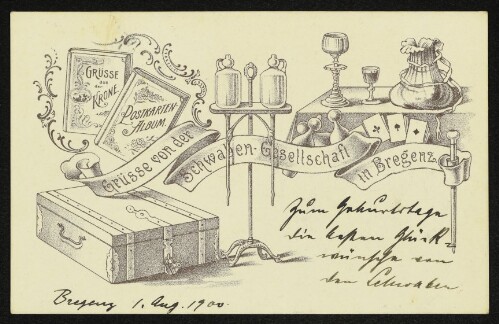 GRÜSSE
aus der
KRONE.
POSTKARTEN-
ALBUM.
Grüsse von der Schwaben-Gesellschaft in Bregenz
Zum Geburtstage
die besten Glück-
wünsche von
den Schwaben
Bregenz 1. Aug. 1900.